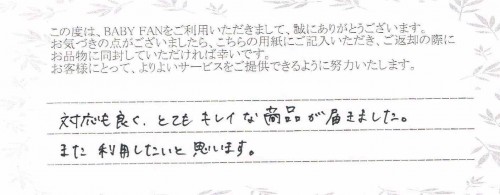 この度は、BABY FANをご利用いただきまして、誠にありがとうございます。
お気づきの点がございましたら、こちらの用紙にご記入いただき、ご返却の際に
お品物に同封していただければ幸いです。
お客様にとって、よりよいサービスをご提供できるように努力いたします。
対応も良く、とても キレイな商品が届きました。
また利用したいと思います。